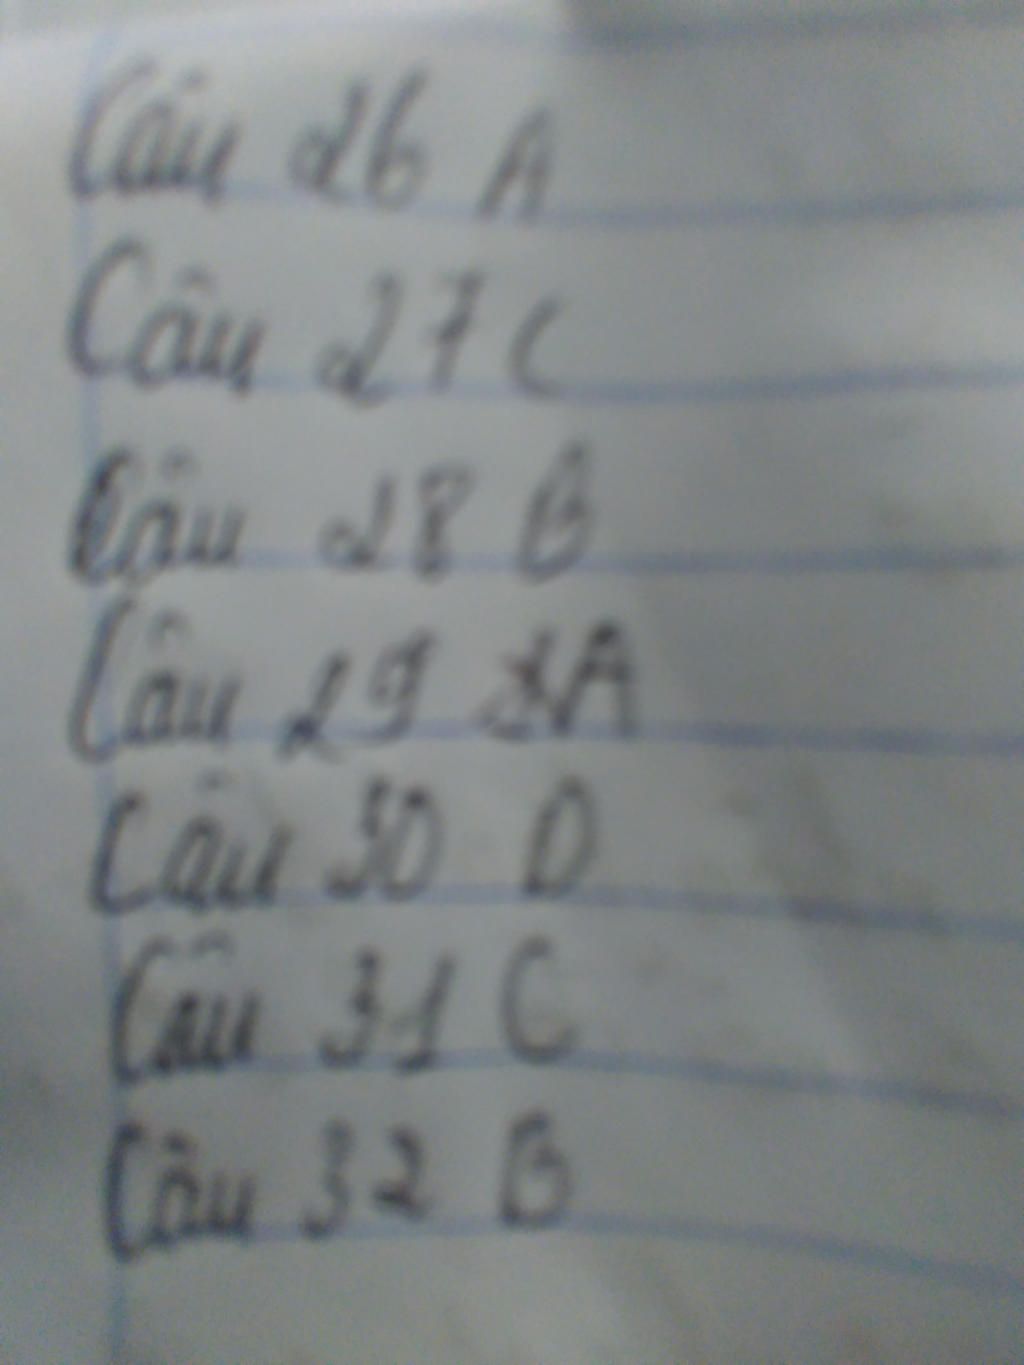 Câu 26 A
Câu 27 C
Câu 28 B
Câu 29 A
Câu 30 D
Câu 31 C
Câu 32 B